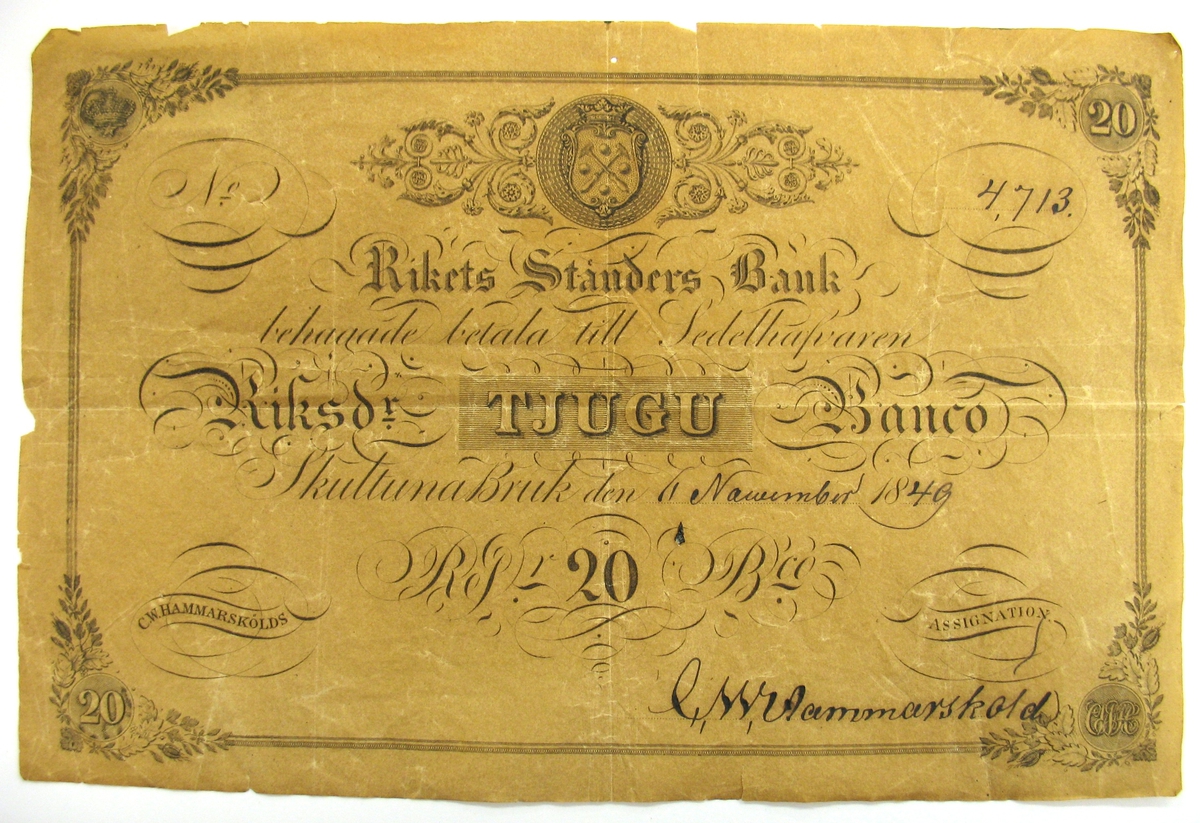 20
No 4,713.
Rikets Ständers Bank
behagade betala till Sedelhafvaren
Riksdr TJUGU Banco
Skultuna Bruk den 1 Nawember 1849
RGr 20 Bco
C.W. HAMMARSKÖLDS ASSIGNATION
C, W, Hammarskold
20